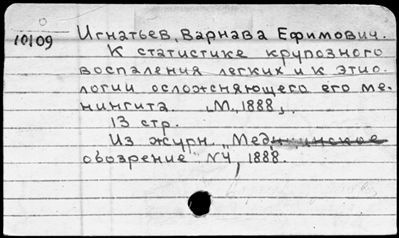 10109 Игнатьев, Варнава Ефимович.
К статистике крупозного
воспаления легких и к этио-
логии осложняющего его ме-
нингита. М., 1888,.
13 стр.
Из журн. "Медицинское
обозрение" №4, 1888.